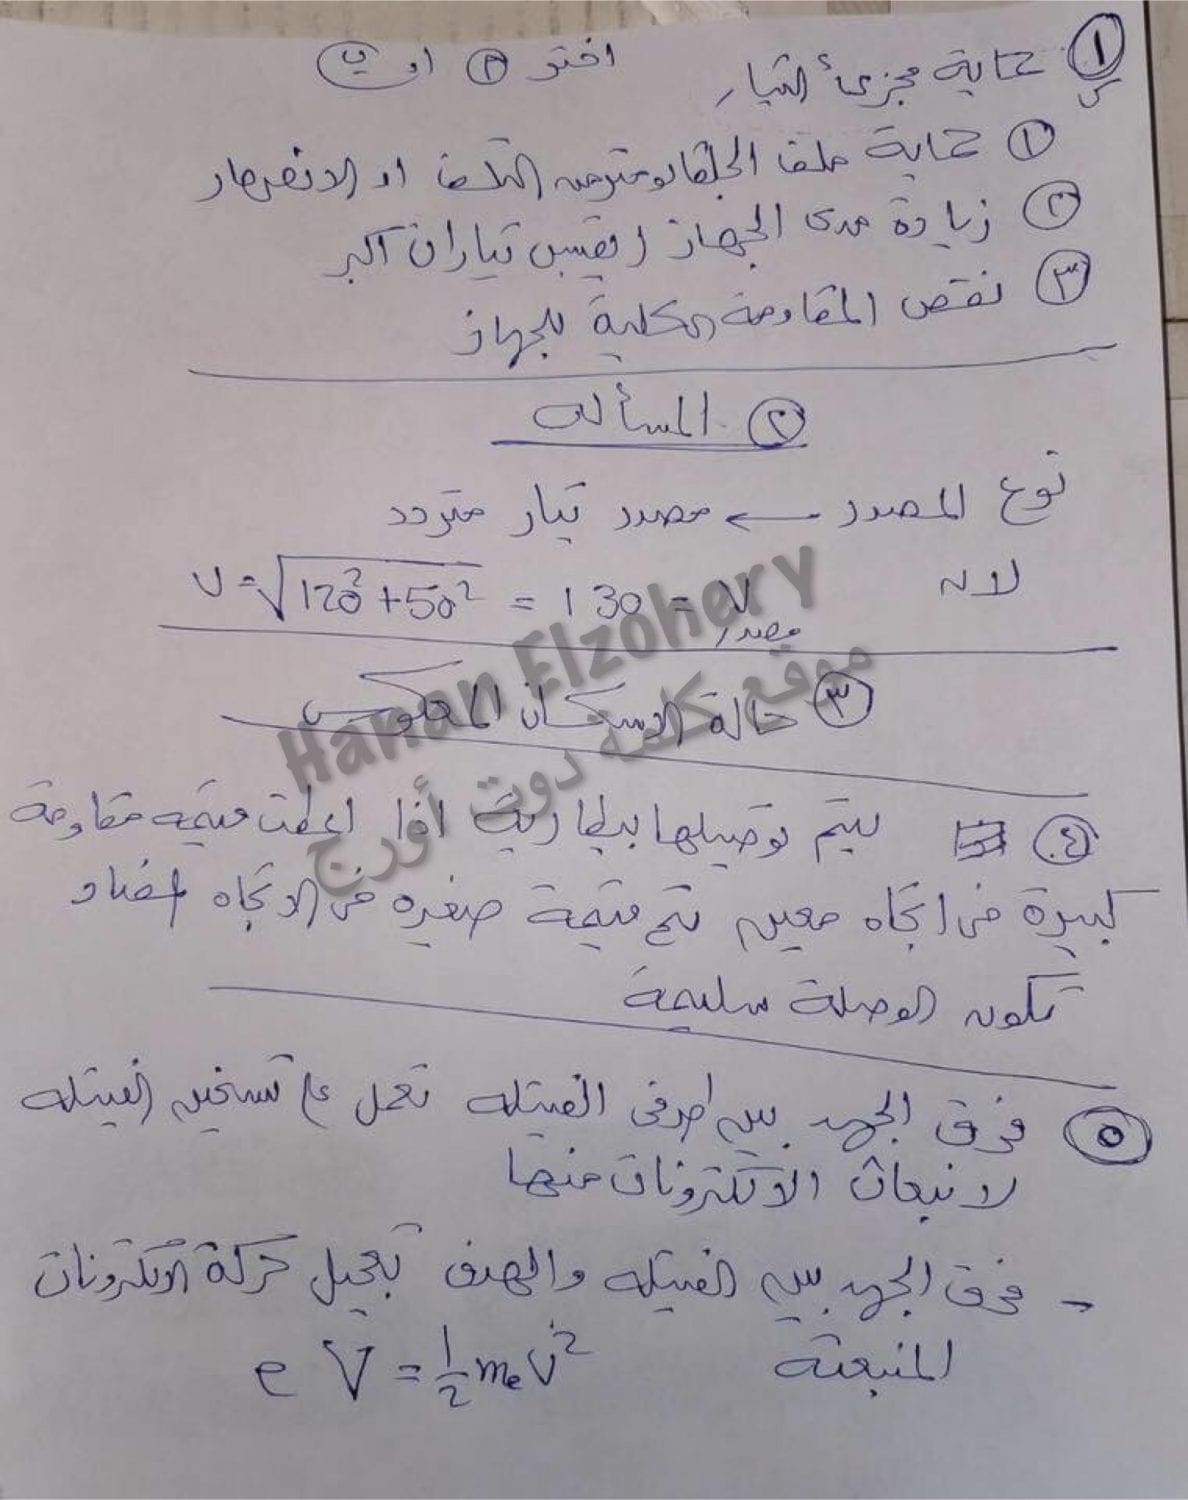 ١ حماية مجزئ التيار اختر ٢ او ب
١ حماية ملف الجلفانومتر من التلف او الانصهار
٢ زيادة مدى الجهاز ليقيس تيارات اكبر
٣ نقص المقاومة الكلية للجهاز
٢ المسألة
نوع المصدر ← مصدر تيار متردد
لانه V=√120²+50² = 130 = V مصدر
٣ حالة الاستكان المعكوس
٤ يتم توصيلها ببطارية اذا اعطت قيمه مقاومة
كبيرة فى اتجاه معين ثم قيمة صغيره فى الاتجاه المضاد
تكون الوصلة سليمة
٥ فرق الجهد بين طرفى الفتيله تعمل على تسخين الفتيله
لانبعاث الالكترونات منها
- فرق الجهد بين الفتيله والهدف تعجيل حركة الالكترونات
المنبعثة
e V = 1/2 mₑ v²
Hanan Elzohery
موقع كلمة دوت أورج